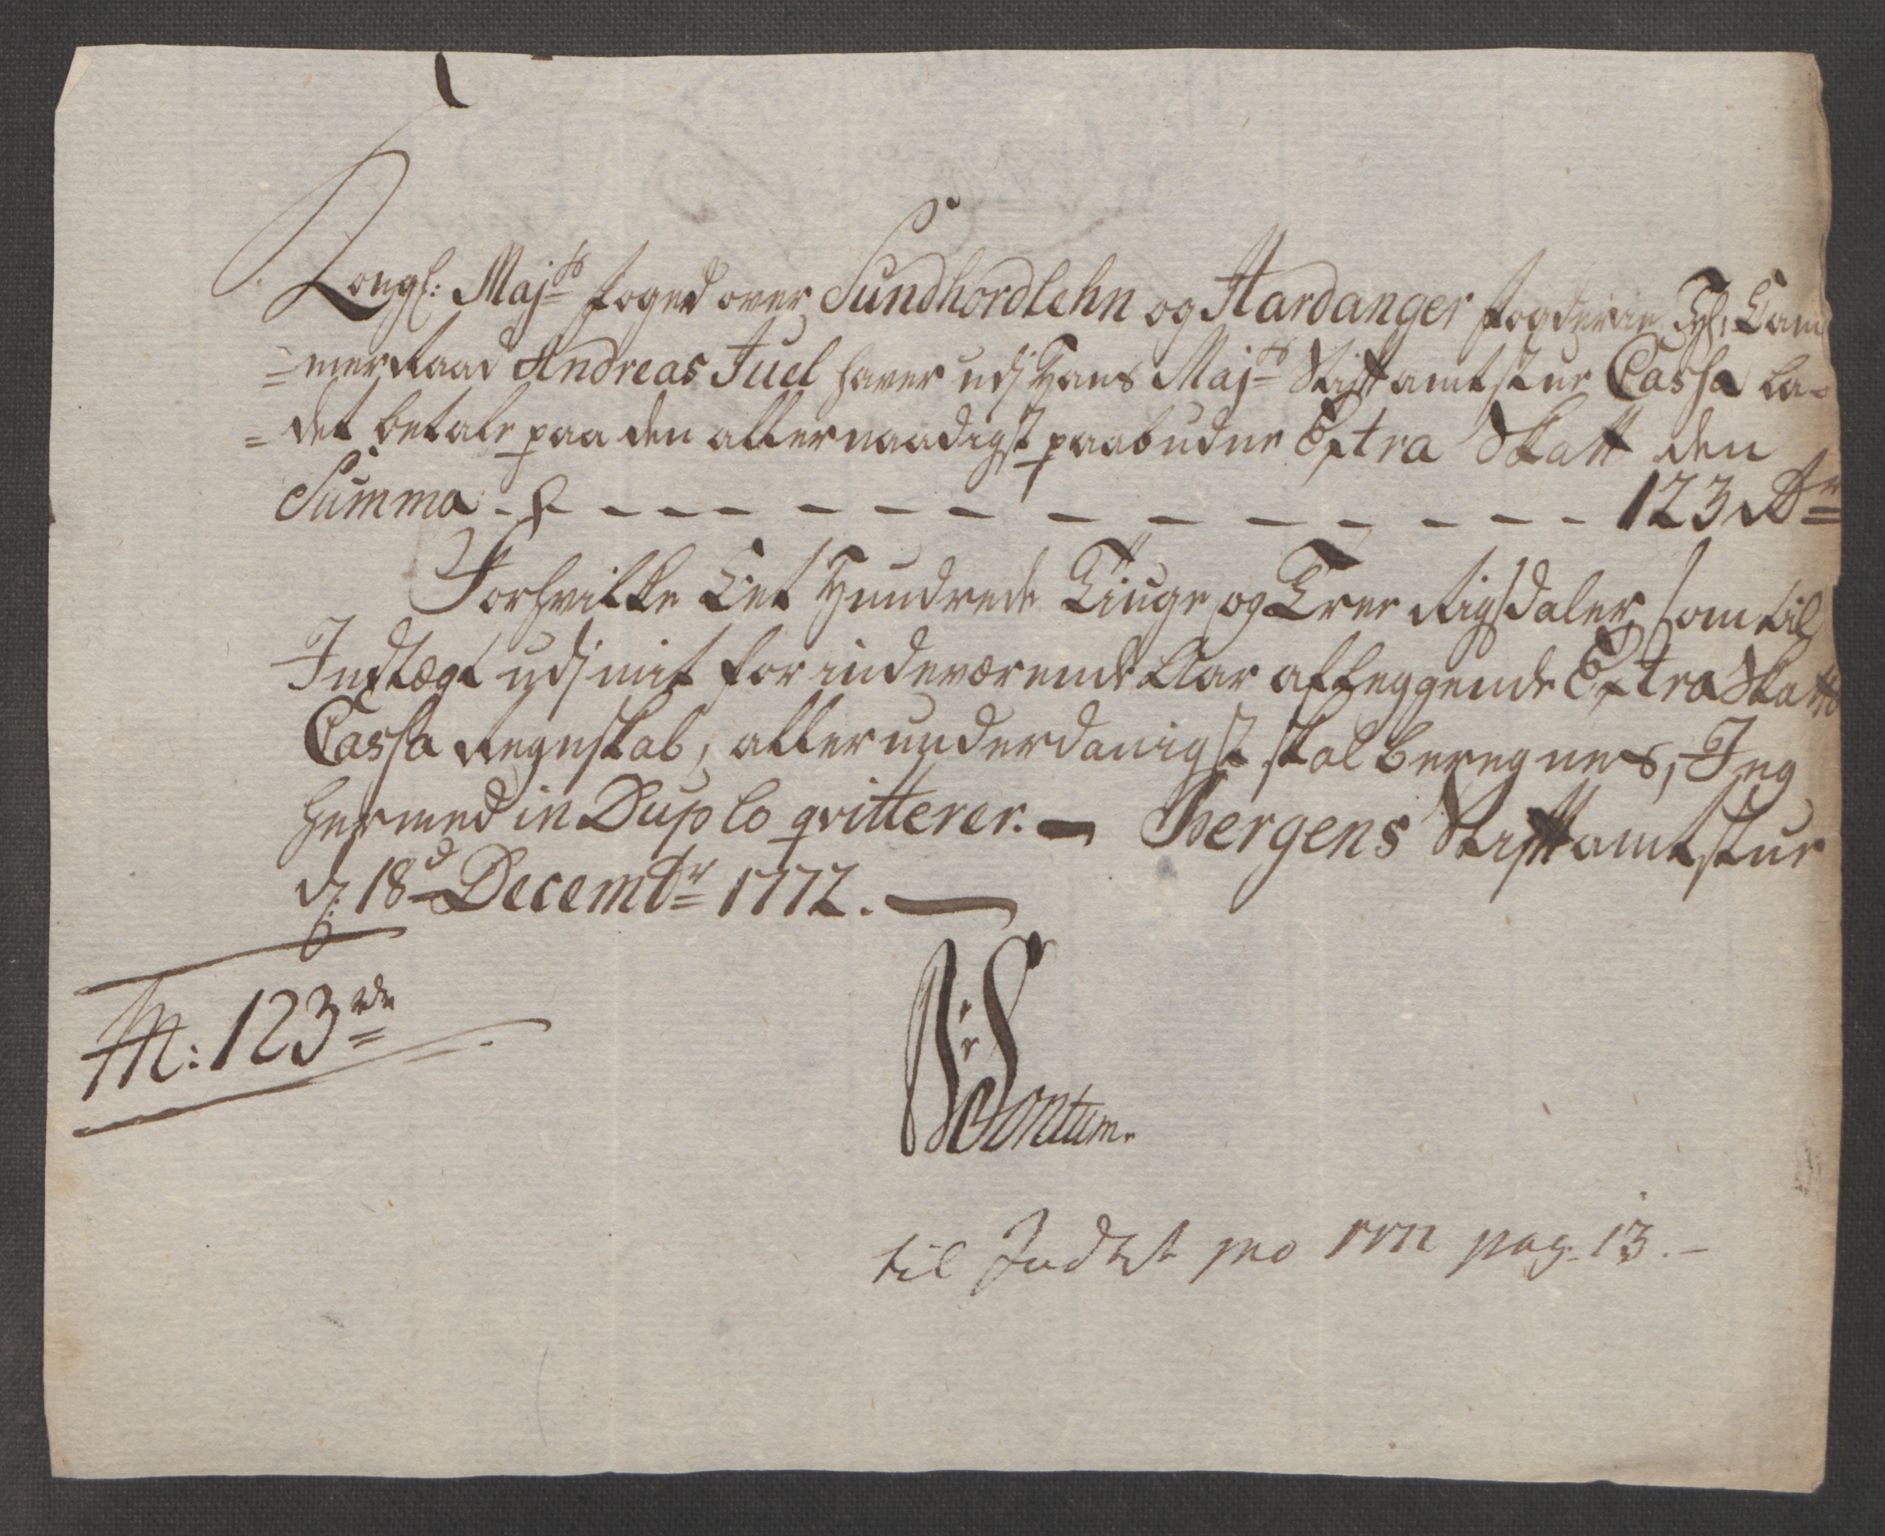 Kongl: Maj:ts foged over Sundhordlehn og Hardanger fogderie Tyl: Cam
=merRaad Andreas Juel haver udj Hans Maj:ts Stiftamtstue Cassa la=
=det betale paa den allernaadigst paabudne Extra Skatt den
Summa - - - - - - - - - - - - - 123 Rdr
Forhvilke Eet Hundrede Tiuge og Tree Rigsdaler, som til
Indtægt udj mit for indeværende Aar aflæggende Extra Skatte
Cassa Regnskab, allerunderdanigst skal beregnes, Jeg
hermed in Duplo qvitterer. — Bergens Stiftamtstue
d: 18d Decembr 1772. —
123 rdr
Fontum.
til Indtægt pro 1772 pag. 13. —